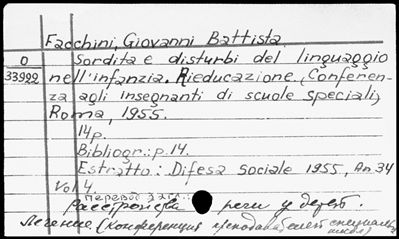 Facchini, Giovanni Battista
O Sordita e disturbi del linguaggio
33922 nell'infanzia. Rieducazione. (Conferen-
za agli insegnanti di scuole speciali)
Roma, 1955.
14p.
Bibliogr.: p.14.
Estratto: Difesa Sociale 1955, An 34
Vol 4.
Расстройства речи у детей.
Лечение (Конференция преподавателей специальн.
школ)